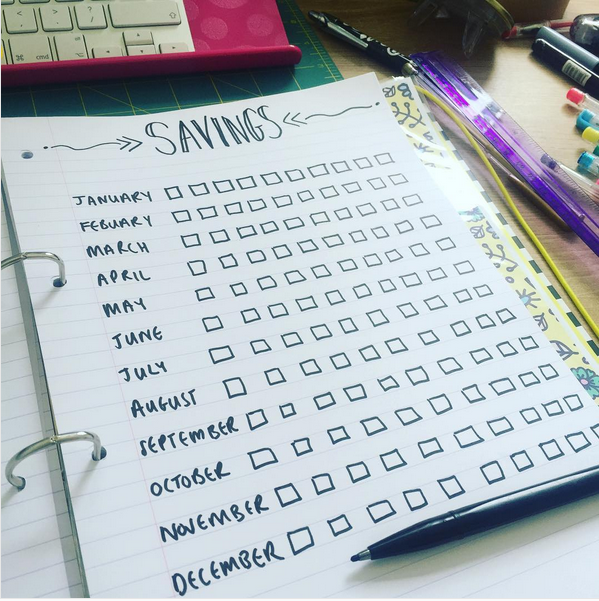 SAVINGS
JANUARY
FEBUARY
MARCH
APRIL
MAY
JUNE
JULY
AUGUST
SEPTEMBER
OCTOBER
NOVEMBER
DECEMBER